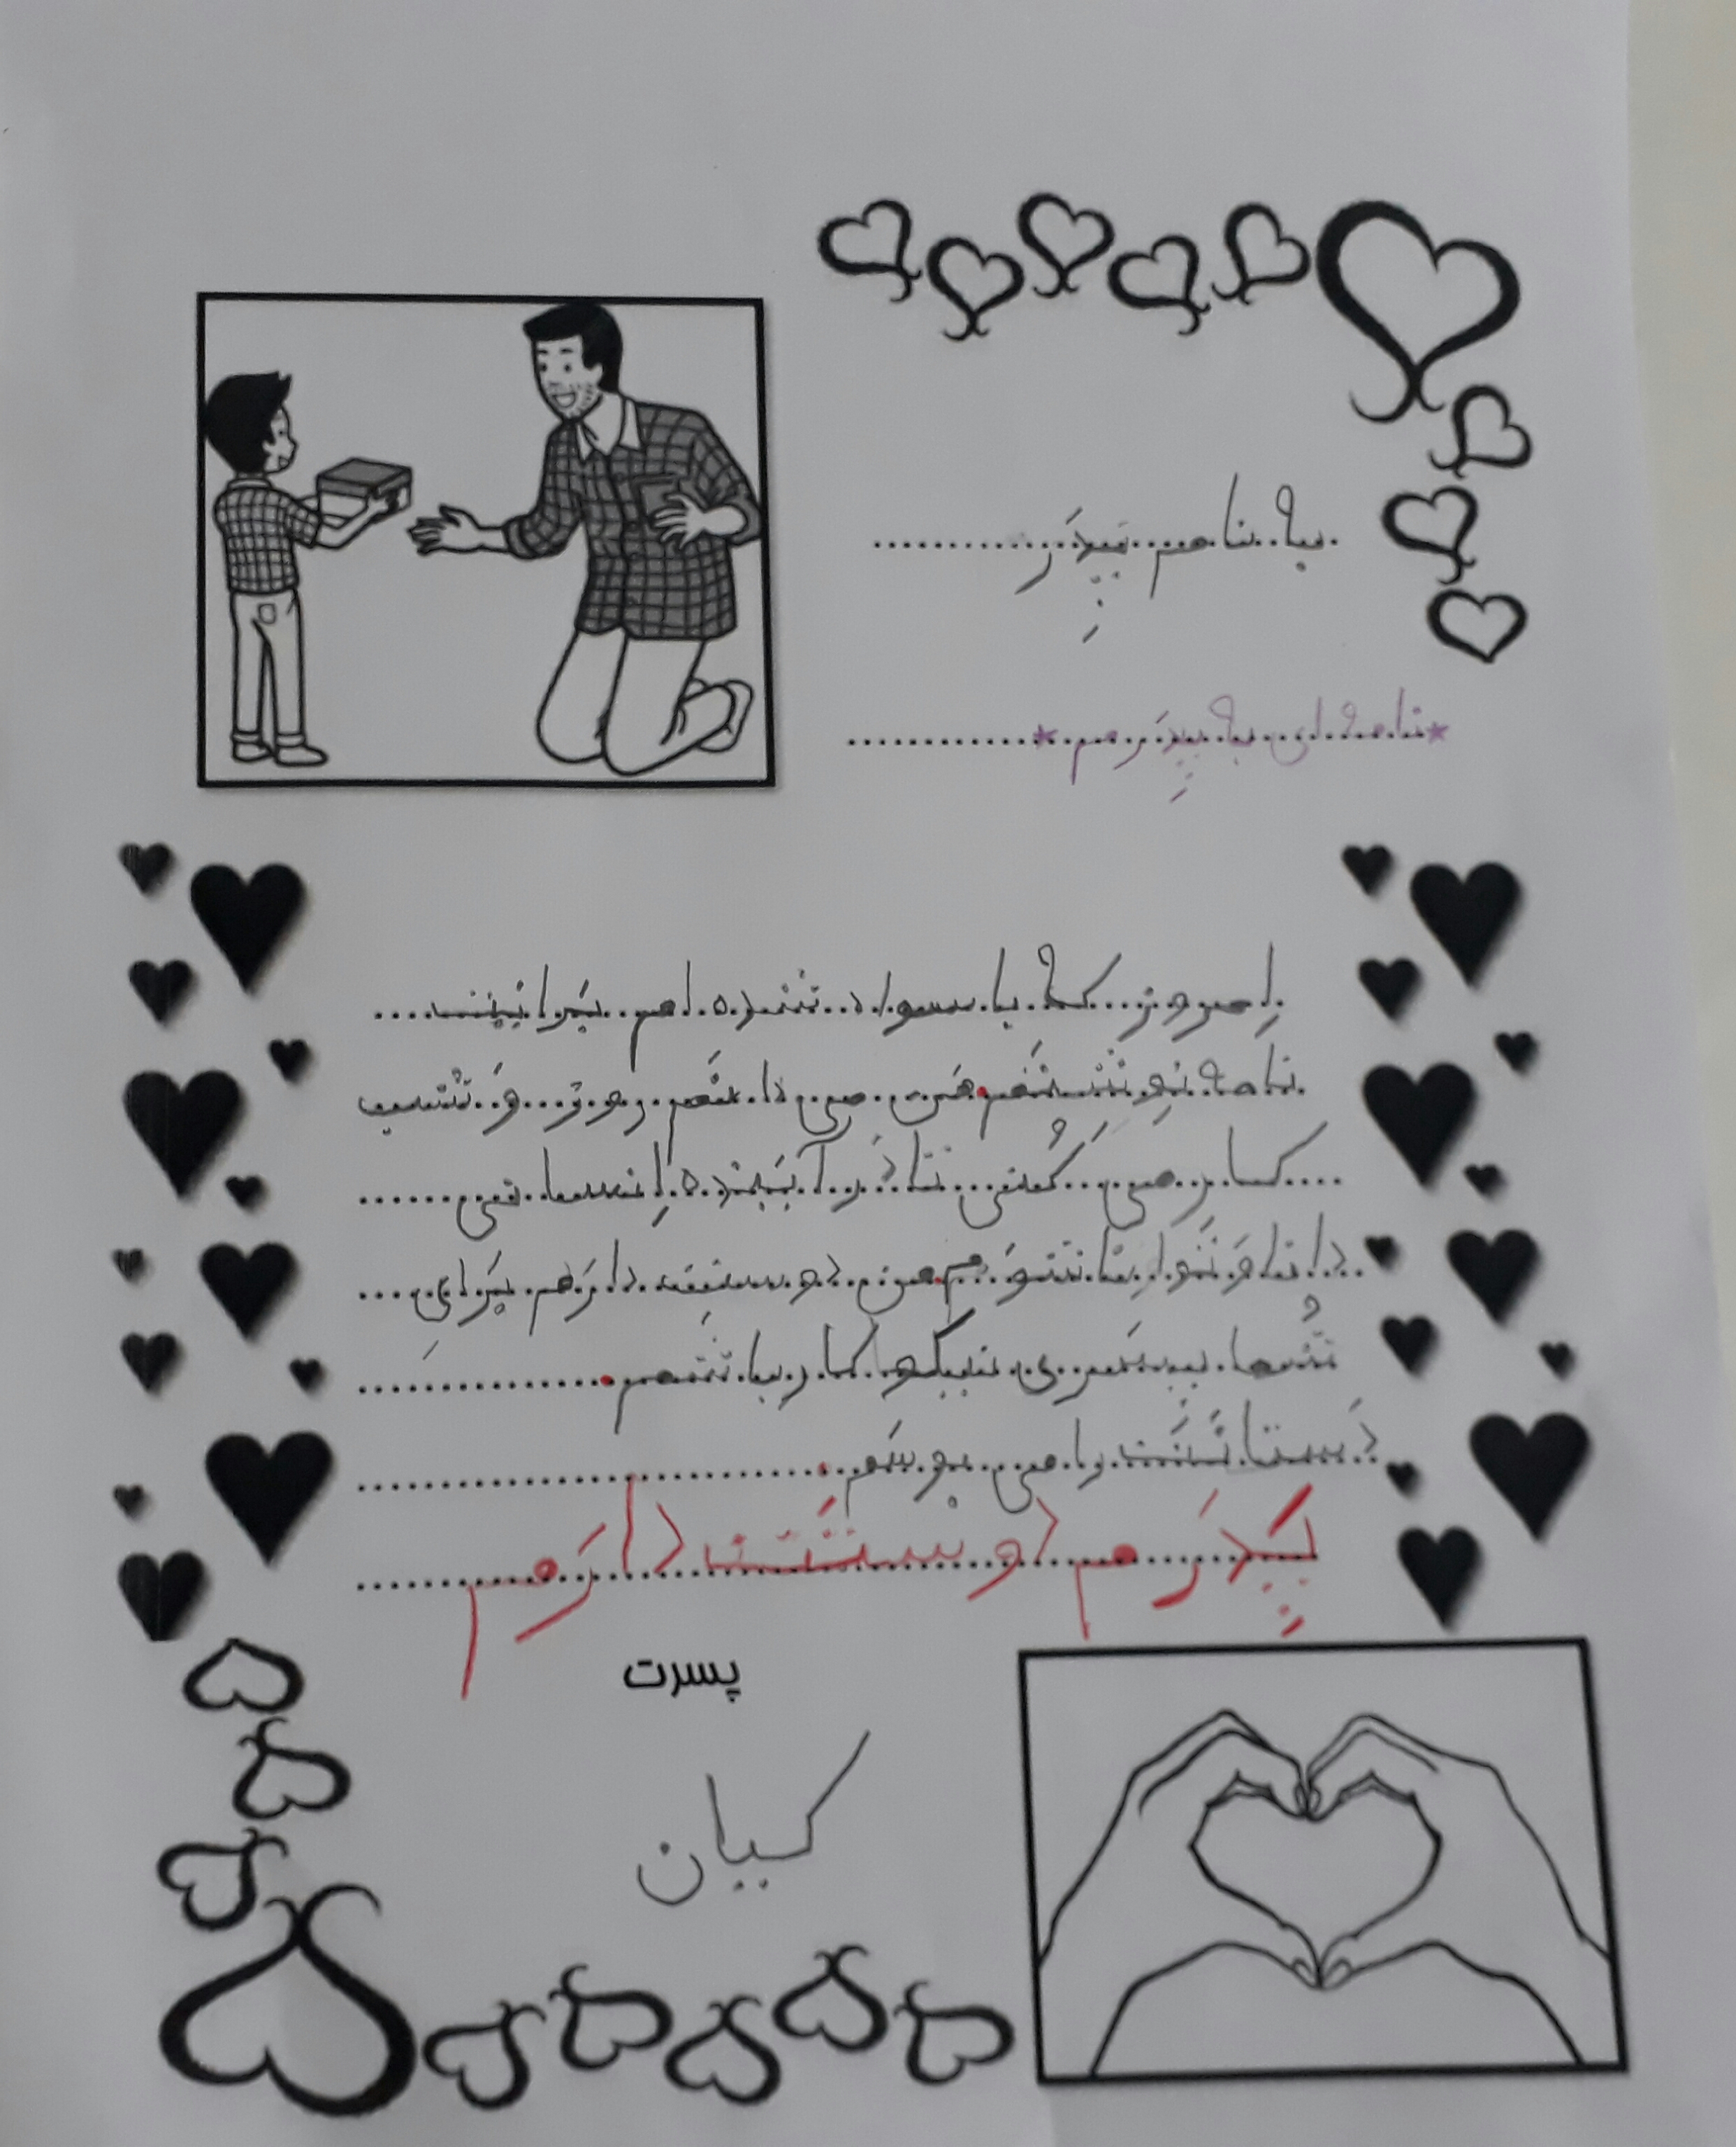 به نام پِدَر
★نامه ای به پِدَرم★
اِمروز که با سواد شده ام بَرایَت
نامه نِوِشتَم. مَن می دانَم روز وَ شَب
کار می کُنی تا دَر آیَنده اِنسانی
دانا وَ تَوانا شَوَم. من دوستَت دارَم بَرایِ
شُما پِسَری نیکو کار باشَم.
دَستانَت را می بوسَم.
پِدَرم دوستَت دارَم
پسرت
کیان